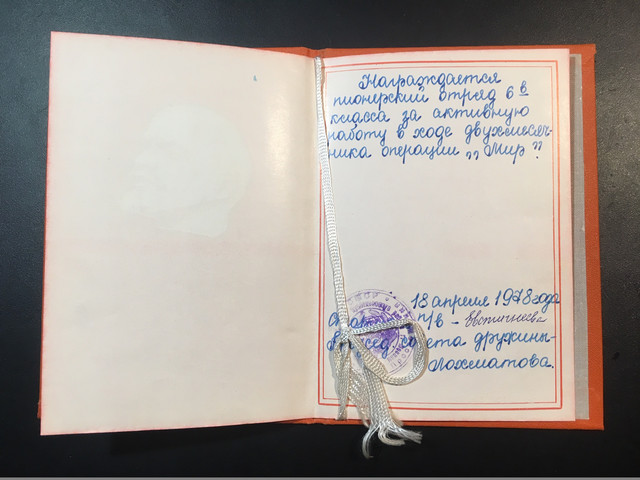 Награждается
пионерский отряд 6 в
класса за активную
работу в ходе двухмесяч-
ника операции „Мир".
18 апреля 1978 года
п/в - Евстигнеева
Председ. совета дружины-
Лохматова.